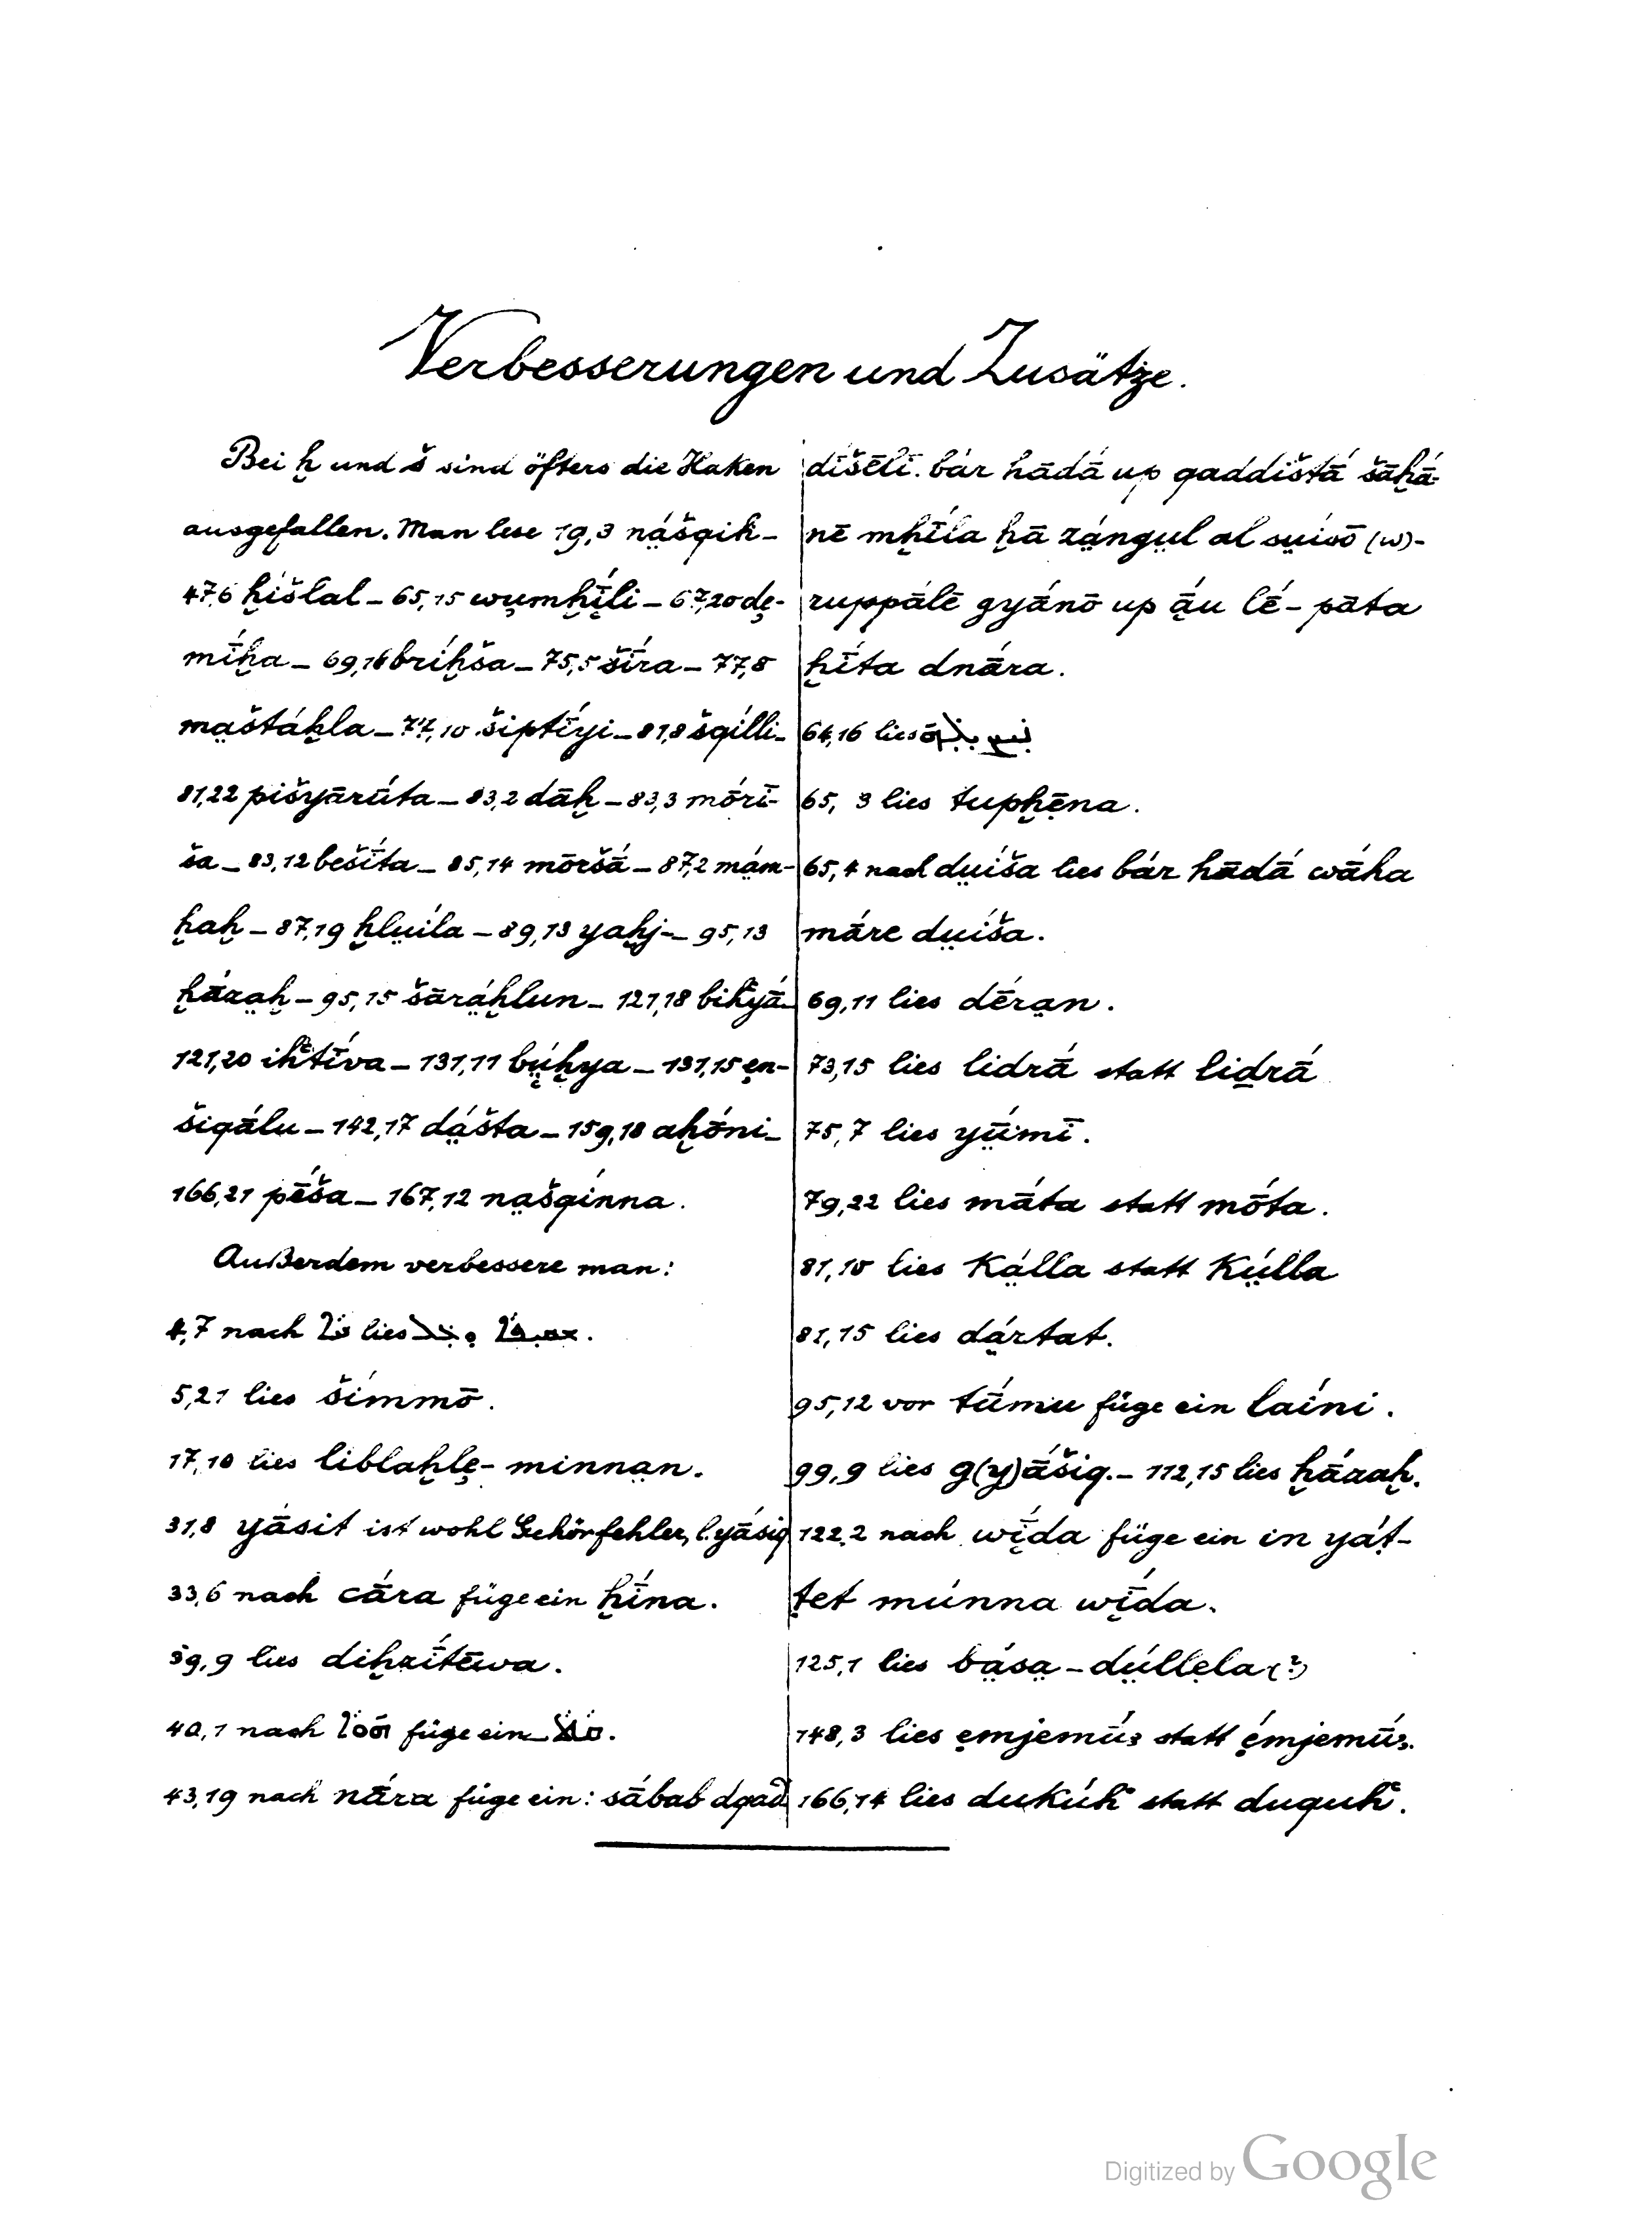 Verbesserungen und Zusätze.
Bei ḫ und š sind öfters die Haken
ausgefallen. Man lese 19,3 nä́šqiḫ –
47,6 ḫíšlal – 65,15 wumḫī́li – 67,20 dę-
mī́ḫa – 69,16 bríḫša – 75,5 šī́ra – 77,8
ma̤štáḫla – 77,10 šiptī́yi – 81,8 šqílli –
81,22 pišyārū́ta – 83,2 dāḫ – 83,3 mṓrī-
ša – 83,12 bešī́ta – 85,14 mōršā́ – 87,2 ma̤m-
ḫaḫ – 87,19 ḫlṳíla – 89,13 yaḫj- – 95,13
ḫā́za̤ḫ – 95,15 šārá̤ḫlun – 121,18 biḫyā́ –
121,20 iḫtī́va – 131,11 bṳ́ḫya – 131,15 ęn-
šiqā́lu – 142,17 dá̤šta – 159,18 aḫṓni –
166,21 pḗša – 167,12 na̤šqínna.
Außerdem verbessere man:
4,7 nach lies
5,21 lies šímmō.
17,10 lies liblaḫlę-minna̤n.
31,8 yā́sit ist wohl Gehörfehler, l. yā́siq
33,6 nach cā́ra füge ein ḫī́na.
39,9 lies diḫzī́tēwa.
40,1 nach füge ein
43,19 nach nā́ra füge ein: sábab dqad
dīšēlī. bár hādā́ up qaddištā́ šāḫā́-
nē mḫī́la ḫā zá̤ngṳl al sṳísō (w)-
ruppā́lē gyā́nō up ā̤́u lḗ-pāta
ḫī́ta dnā́ra.
64,16 lies
65,3 lies tupḫēna.
65,4 nach dṳíša lies bár hādā́ wā́ha
mā́re dṳíša.
69,11 lies dḗra̤n.
73,15 lies lidrā́ statt liḏrā́
75,7 lies yṳ̄́mī.
79,22 lies mā́ta statt mṓta.
81,10 lies ká̤lla statt kṳ́lla
81,15 lies dá̤rtat.
95,12 vor tū́mu füge ein laíni.
99,9 lies g(y)ā́šiq. – 112,15 lies ḫā́zaḫ.
122,2 nach wī́da füge ein in yáṭ-
ṭet múnna wī́da.
125,1 lies bá̤sa̤-dṳ́llęla (?)
148,3 lies ęmjemū́z statt ę́mjemū́z.
166,14 lies dukúḫ statt duquḫ.
Digitized by Google